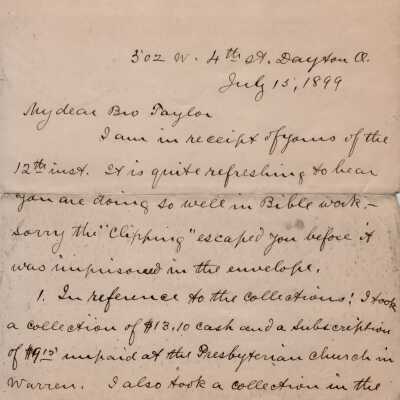 502 W. 4th st. Dayton O.
July 15, 1899
My dear Bro Taylor
I am in receipt of yours of the
12th inst. It is quite refreshing to hear
you are doing so well in Bible work -
sorry the "Clipping" escaped you before it
was imprisoned in the envelope.
1. In reference to the collections: I took
a collection of $13.10 cash and a subscription
of $9 15 unpaid at the Presbyterian church in
Warren. I also took a collection in the